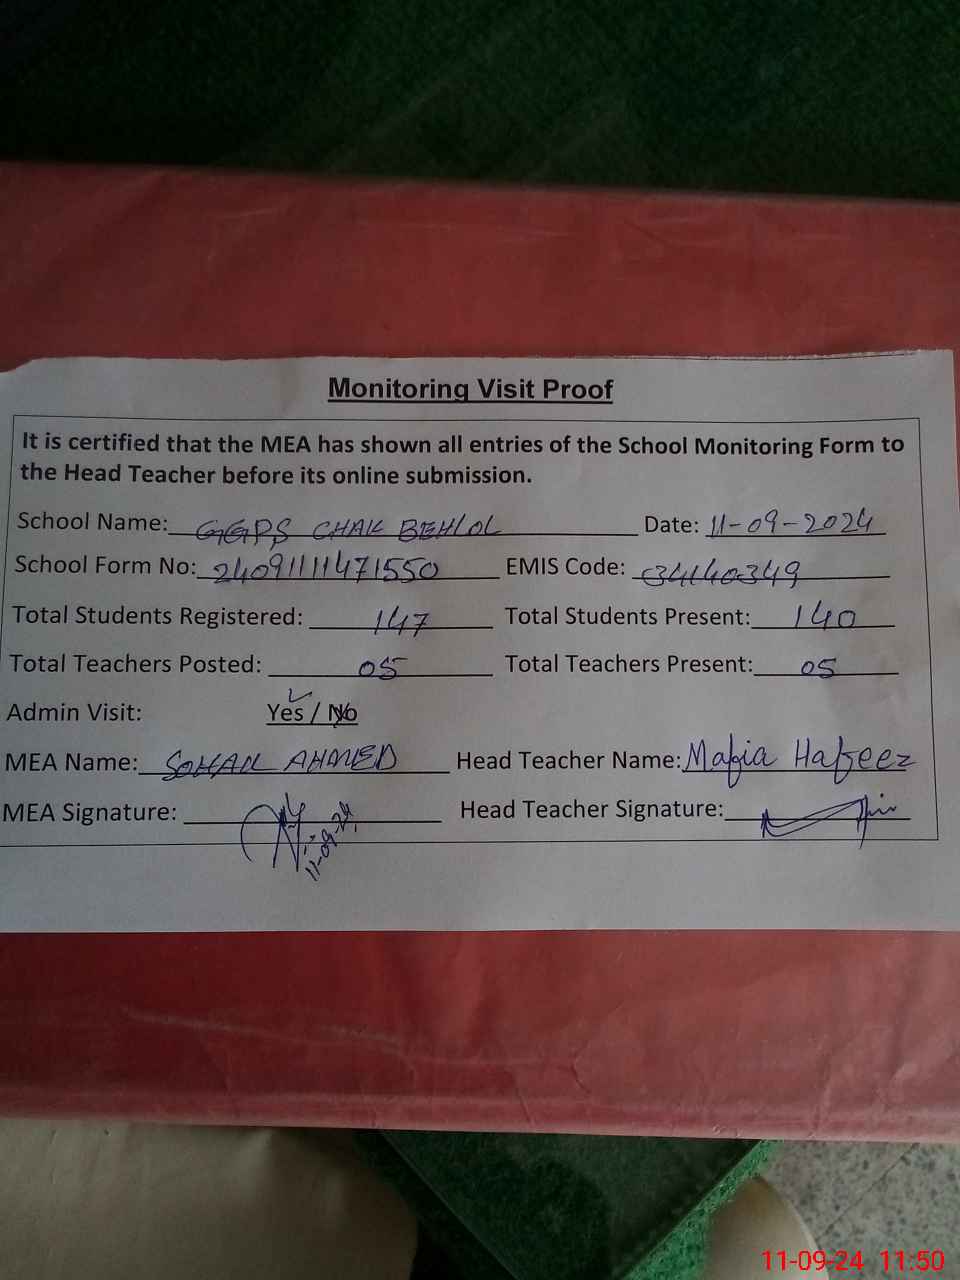 Monitoring Visit Proof
It is certified that the MEA has shown all entries of the School Monitoring Form to
the Head Teacher before its online submission.
School Name: GGPS CHAK BEHLOL Date: 11-09-2024
School Form No: 24091111471550 EMIS Code: 34140349
Total Students Registered: 147 Total Students Present: 140
Total Teachers Posted: 05 Total Teachers Present: 05
Admin Visit: Yes / No
MEA Name: SOHAIL AHMED Head Teacher Name: Hafeez
MEA Signature: Head Teacher Signature:
11-09-24
11-09-24 11:50